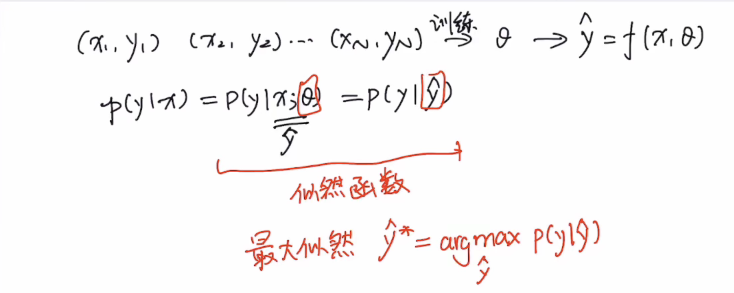 (x₁, y₁) (x₂, y₂) ··· (x_N, y_N) 训练→ θ → ŷ = f(x, θ)
p(y|x) = P(y|x; θ) = P(y|ŷ)
ŷ
似然函数
最大似然 ŷ* = argmax P(y|ŷ)
ŷ